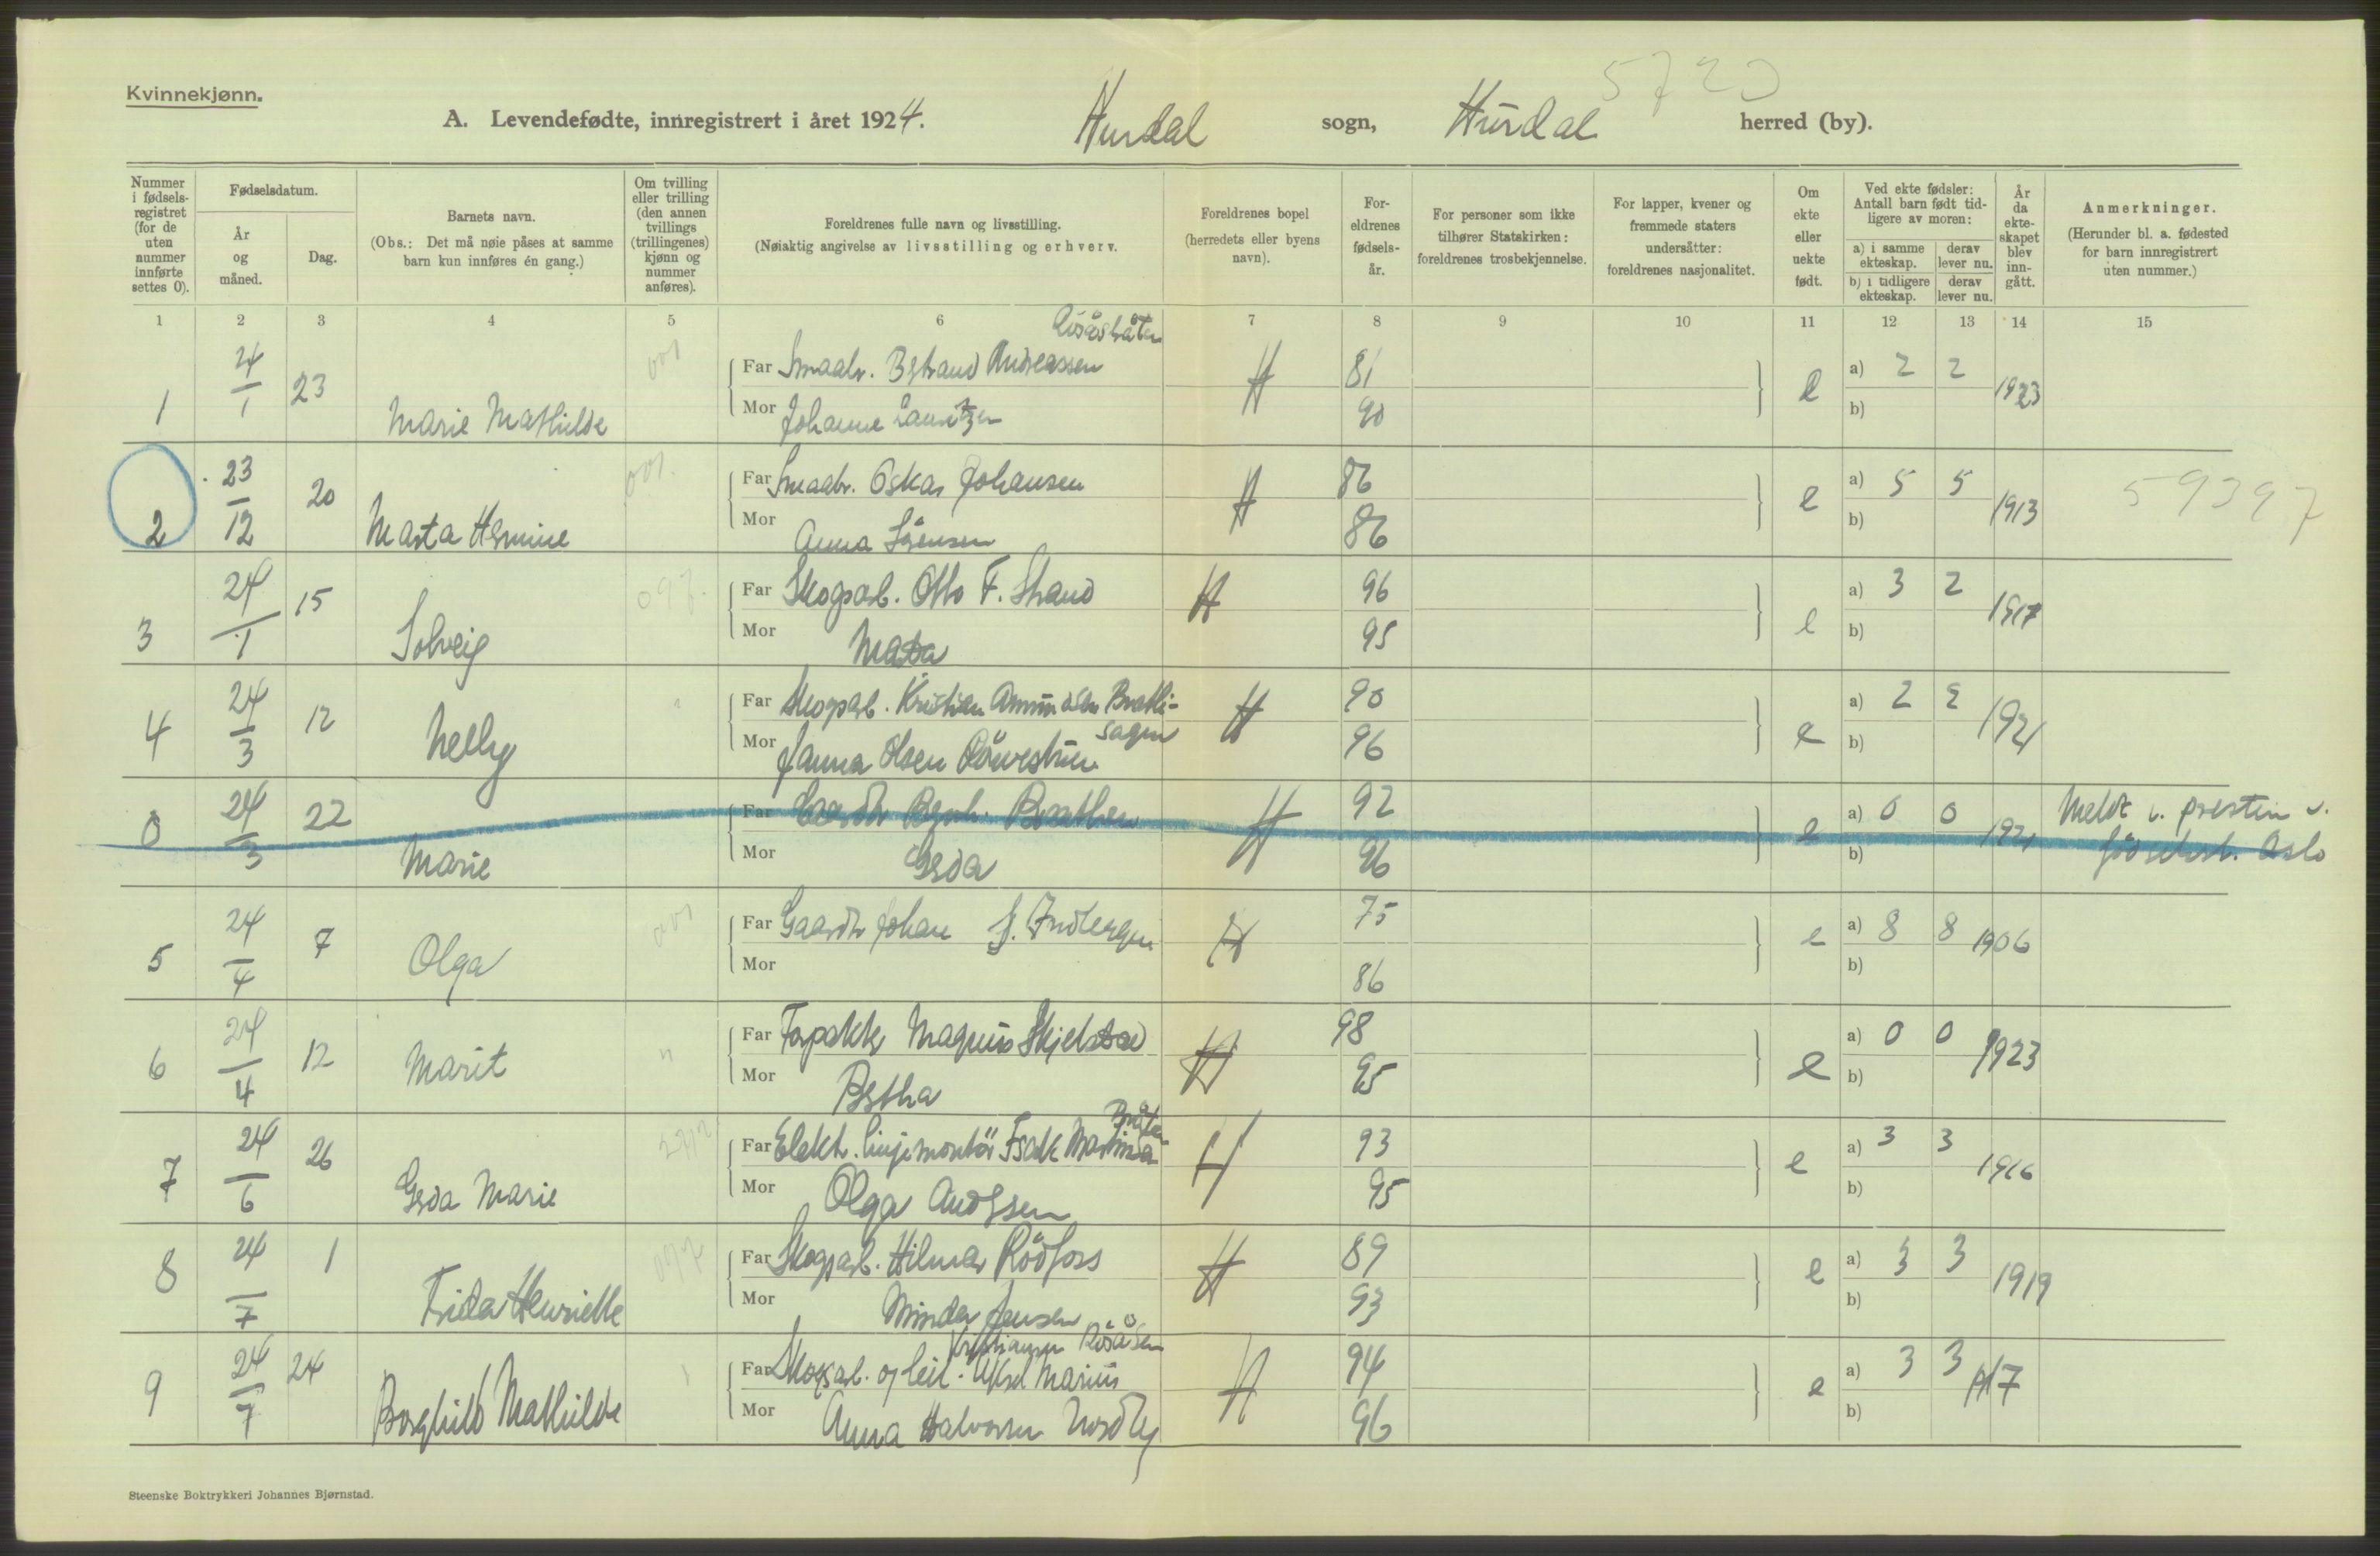 Kvinnekjønn.
A. Levendefødte, innregistrert i året 1924. Hurdal sogn, Hurdal herred (by).
5720
Nummer i fødsels- registret (for de uten nummer innførte settes 0).
Fødselsdatum.
År og måned.
Dag.
Barnets navn.
(Obs.: Det må nøie påses at samme barn kun innføres én gang.)
Om tvilling eller trilling (den annen tvillings (trillingenes) kjønn og nummer anføres).
Foreldrenes fulle navn og livsstilling.
(Nøiaktig angivelse av livsstilling og erhverv.
Foreldrenes bopel (herredets eller byens navn).
For- eldrenes fødsels- år.
For personer som ikke tilhører Statskirken: foreldrenes trosbekjennelse.
For lapper, kvener og fremmede staters undersåtter: foreldrenes nasjonalitet.
Om ekte eller uekte født.
Ved ekte fødsler: Antall barn født tid- ligere av moren:
a) i samme ekteskap. derav lever nu.
b) i tidligere ekteskap. derav lever nu.
År da ekte- skapet blev inn- gått.
Anmerkninger.
(Herunder bl. a. fødested for barn innregistrert uten nummer.)
1 2 3 4 5 6 7 8 9 10 11 12 13 14 15
Rosåsbråten
1 24/1 23 Marie Mathilde 001 Far Smaabr. Bertrand Andreassen H 81 e a) 2 2 1923
Mor Johanne Lauritzen 90 b)
2 23/12 20 Marta Hermine 001. Far Smaabr. Oskar Johansen H 86 e a) 5 5 1913 59397
Mor Anna Sörensen 86 b)
3 24/1 15 Solveig 097. Far Skogsarb. Otto F. Strand H 96 e a) 3 2 1917
Mor Marta 95 b)
4 24/3 12 Nelly " Far Skogsarb. Kristian Amundsen Brathi- H 90 e a) 2 2 1921
sagen
Mor Janna Olsen 96 b)
0 24/3 22 Marie Far Gaardbr Bernh. Brathen H 92 e a) 0 0 1921 Meldt v. presten v.
Mor Gerda 96 b) födselsst. Oslo
5 24/4 7 Olga 001 Far Gaardbr Johan J. H 75 e a) 8 8 1906
Mor 86 b)
6 24/4 12 Marit " Far Forpakter Magnus Skjelstad H 98 e a) 0 0 1923
Mor Bertha 95 b)
Bråten
7 24/6 26 Gerda Marie Far Elektr. linjemontör Isak H 93 e a) 3 3 1916
Mor Olga Andersen 95 b)
8 24/7 1 Frida Henriette 097 Far Skogsarb. Hilmar Rödfors H 89 e a) 3 3 1919
Mor Minda Jensen 93 b)
Kristiansen Rosåsen
9 24/7 24 Borghild Mathilde Far Skogsarb. og leil. Aksel Marius H 94 e a) 3 3 1917
Mor Anna Halvorsen Nordby 96 b)
Steenske Boktrykkeri Johannes Bjørnstad.